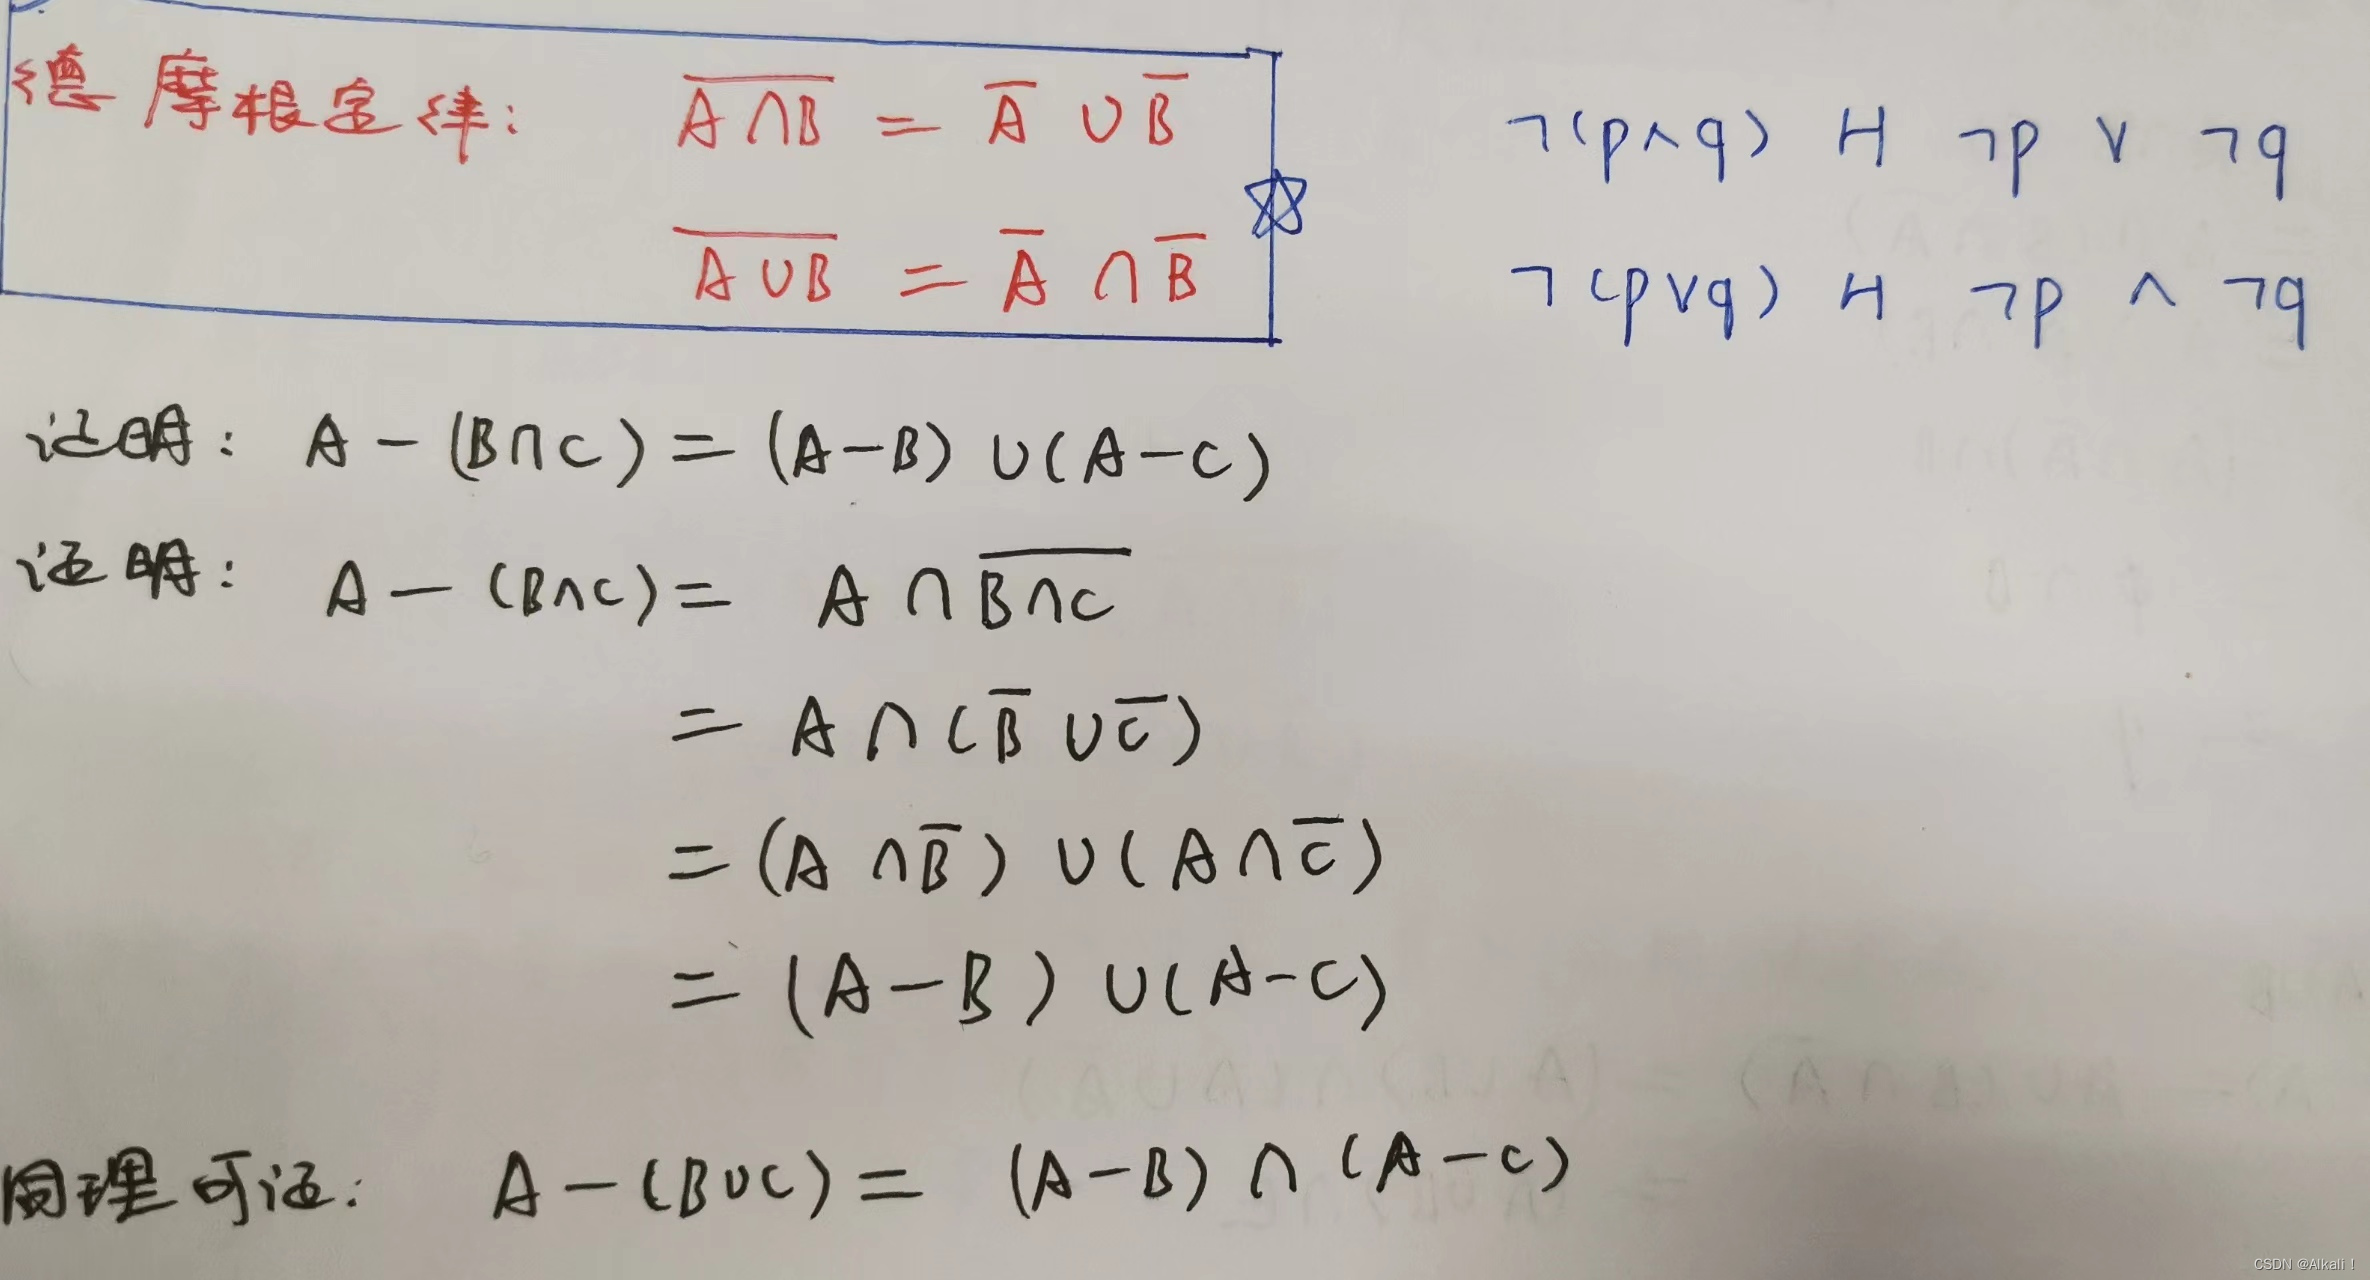 德摩根定律: $\overline{A \cap B} = \overline{A} \cup \overline{B}$
$\overline{A \cup B} = \overline{A} \cap \overline{B}$
¬(p∧q) H ¬p ∨ ¬q
¬(p∨q) H ¬p ∧ ¬q
证明: A - (B∩C) = (A-B) ∪ (A-C)
证明: A - (B∩C) = $A \cap \overline{B \cap C}$
= $A \cap (\overline{B} \cup \overline{C})$
= $(A \cap \overline{B}) \cup (A \cap \overline{C})$
= (A-B) ∪ (A-C)
同理可证: A - (B∪C) = (A-B) ∩ (A-C)
CSDN @Alkali!